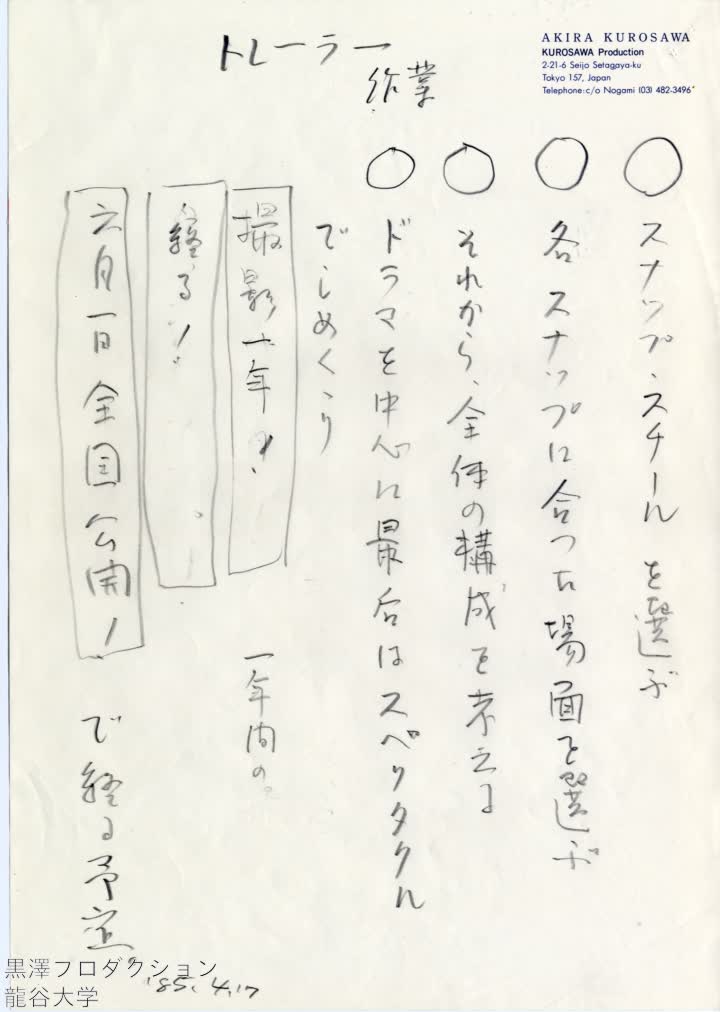 AKIRA KUROSAWA
KUROSAWA Production
2-21-6 Seijo Setagaya-ku
Tokyo 157, Japan
Telephone:c/o Nogami (03) 482-3496
トレーラー
作業
○ スナップ・スチールを選ぶ
○ 各スナップに合った場面を選ぶ
○ それから、全体の構成を考える
○ ドラマを中心に最后はスペクタクル
でしめくくり
撮影一年
一年間の。
終る!
六月一日全国公開!
で終る予定。
'85.4.17
黒澤プロダクション
龍谷大学